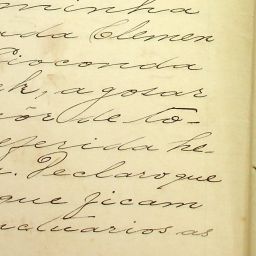 minha
ada Clemen
Gioconda
ck, a gosar
ôr de to-
eferida he-
. Declaro que
que ficam
uctuarios as